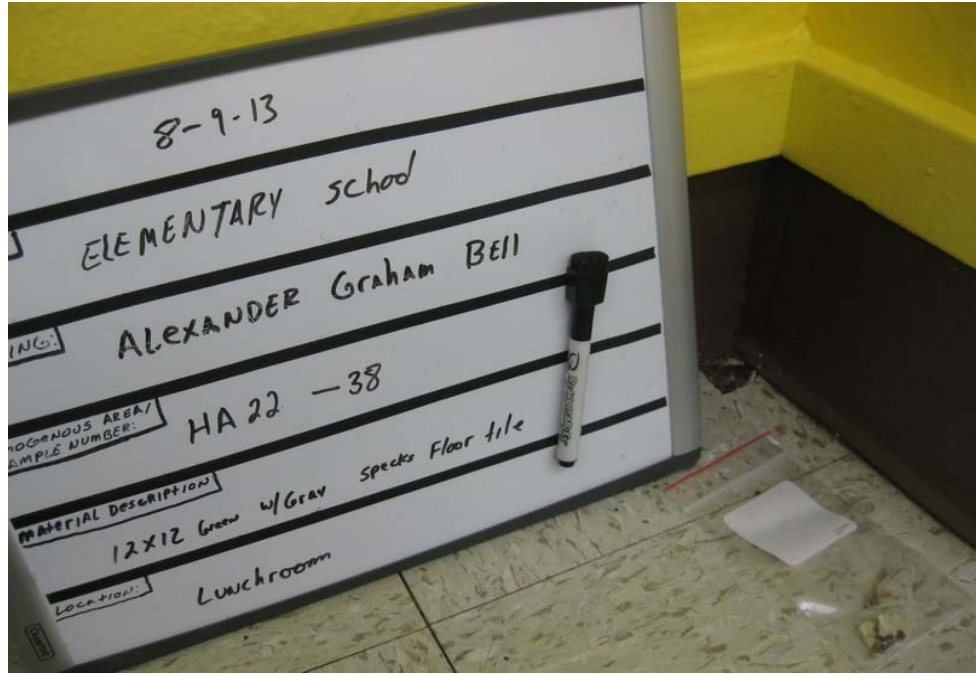 8-9-13
ELEMENTARY school
ING: ALEXANDER Graham BEll
MOGENOUS AREA/
AMPLE NUMBER: HA 22 - 38
MATERIAL DESCRIPTION
12X12 Green w/Gray specks Floor tile
LOCATION: Lunchroom
Quartet